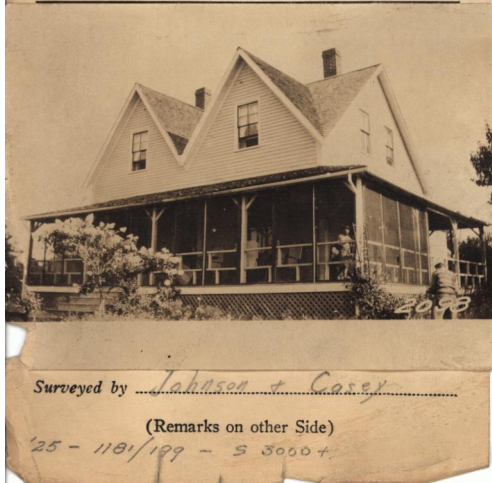 2098
Surveyed by Johnson + Casey
(Remarks on other Side)
'25 - 1181/199 - S 3000+